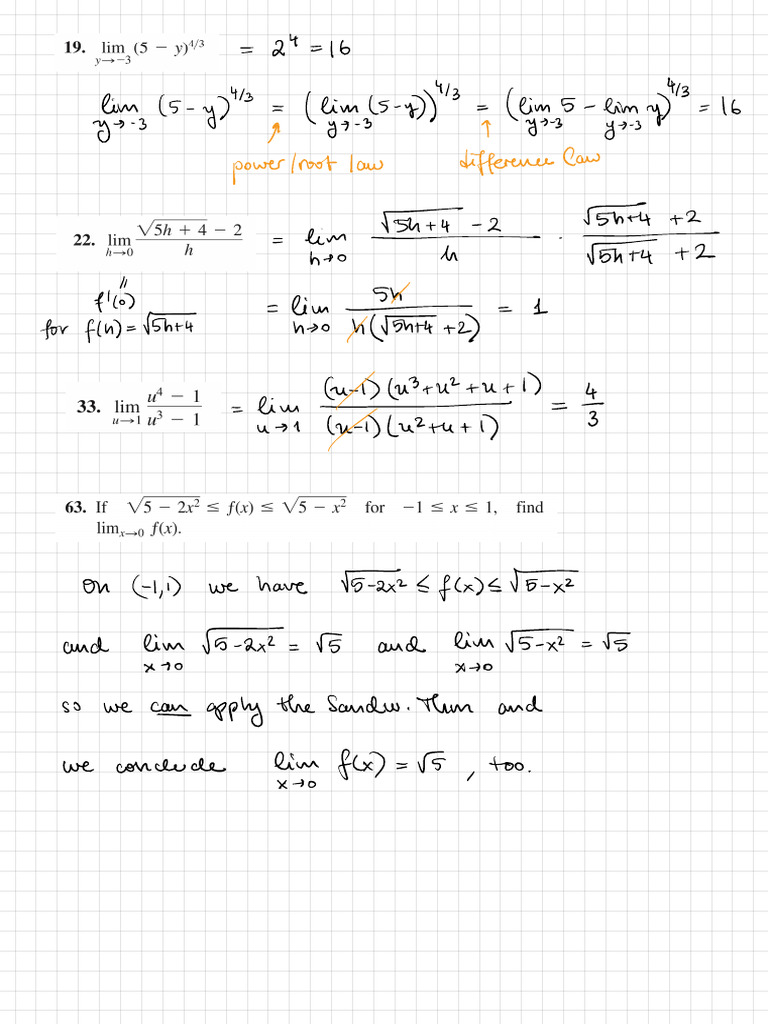 19. lim_{y→−3} (5 − y)^{4/3} = 2^4 = 16
lim_{y→-3} (5-y)^{4/3} = (lim_{y→-3} (5-y))^{4/3} = (lim_{y→-3} 5 - lim_{y→-3} y)^{4/3} = 16
power/root law difference law
22. lim_{h→0} (√(5h + 4) − 2)/h = lim_{h→0} (√(5h+4) - 2)/h · (√(5h+4) + 2)/(√(5h+4) + 2)
"
f'(0) = lim_{h→0} 5h/(h(√(5h+4) + 2)) = 1
for f(h) = √(5h+4)
33. lim_{u→1} (u^4 − 1)/(u^3 − 1) = lim_{u→1} ((u-1)(u^3+u^2+u+1))/((u-1)(u^2+u+1)) = 4/3
63. If √(5 − 2x^2) ≤ f(x) ≤ √(5 − x^2) for −1 ≤ x ≤ 1, find
lim_{x→0} f(x).
on (-1,1) we have √(5-2x^2) ≤ f(x) ≤ √(5-x^2)
and lim_{x→0} √(5-2x^2) = √5 and lim_{x→0} √(5-x^2) = √5
so we can apply the Sandw. Thm and
we conclude lim_{x→0} f(x) = √5, too.